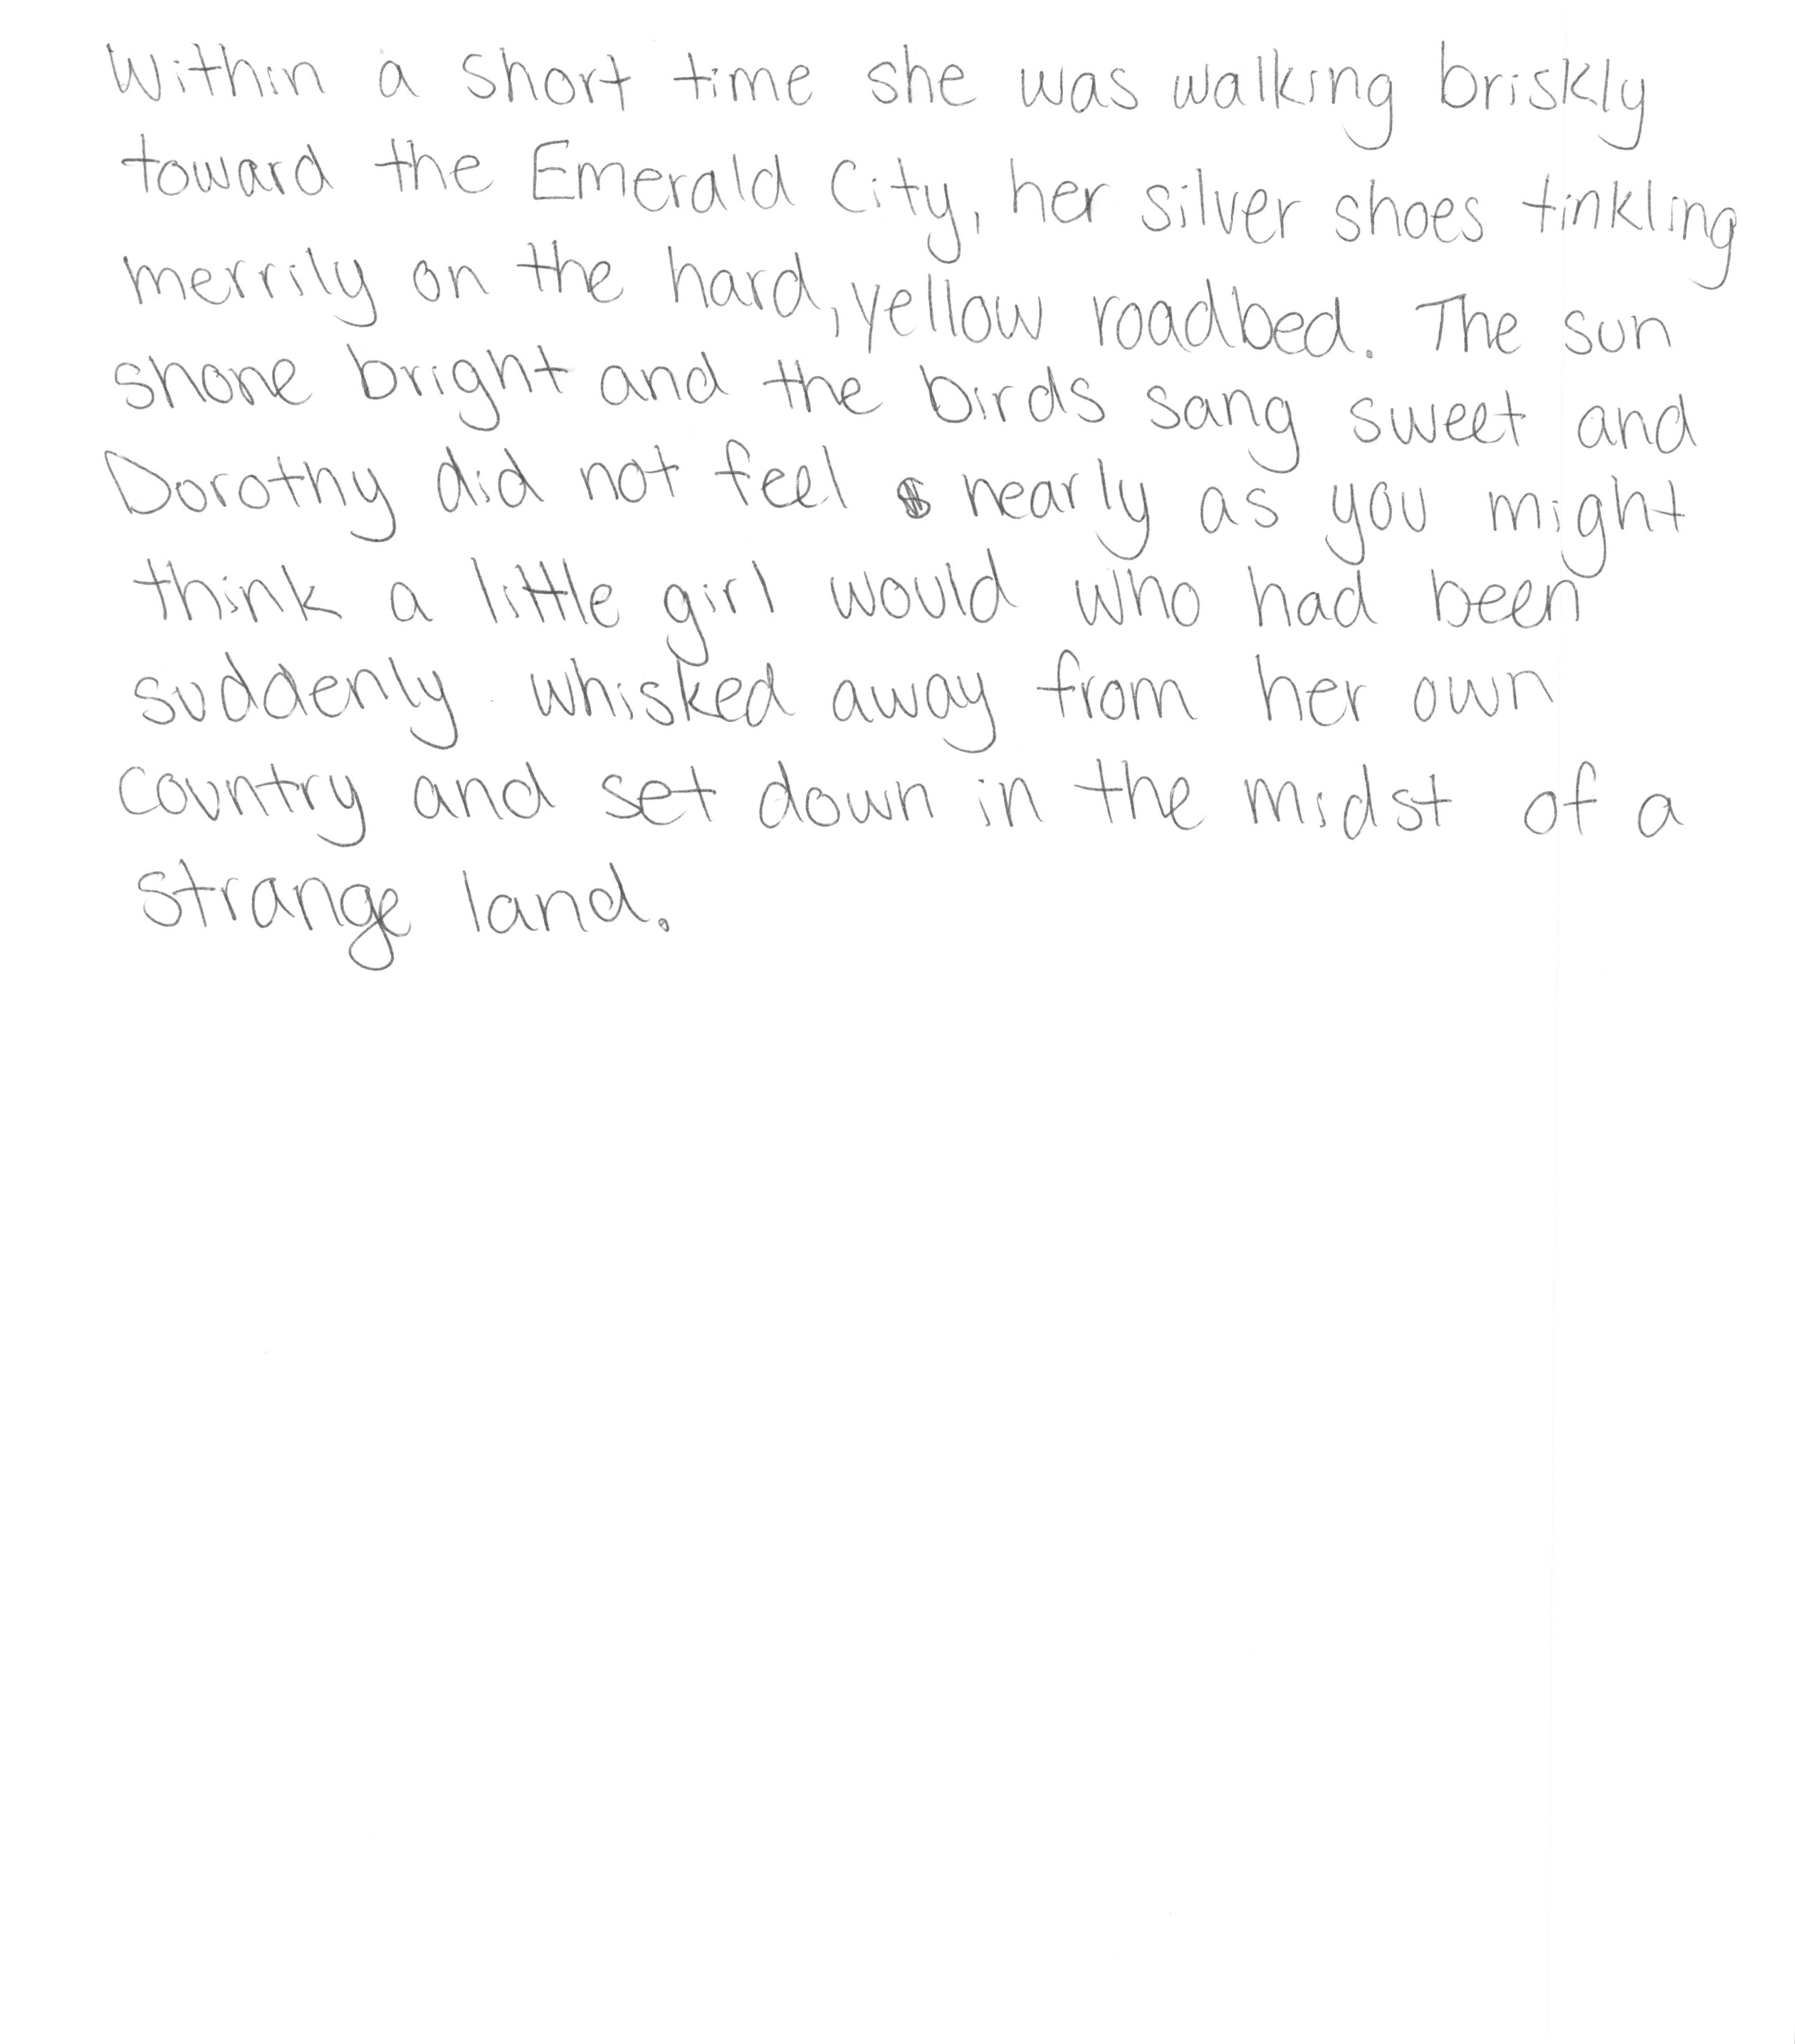 Within a short time she was walking briskly
toward the Emerald City, her silver shoes tinkling
merrily on the hard, yellow roadbed. The sun
shone bright and the birds sang sweet and
Dorothy did not feel nearly as you might
think a little girl would who had been
suddenly whisked away from her own
country and set down in the midst of a
strange land.